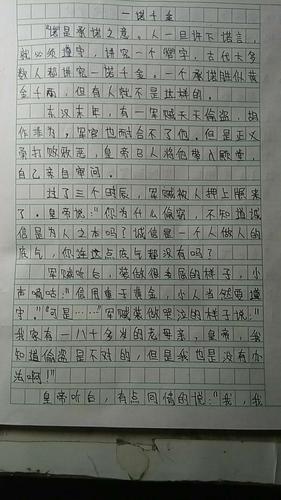 一诺千金
"诺是承诺之意。人一旦许下诺言，
就必须遵守，讲究一个"智"字，古代大多
数人都讲究一诺千金。一个承诺胜似黄
金千两，但有人就不是这样的。
东汉末年，有一军贼天天偷盗，胡
作非为，军官也耐台不了他。但是正义
负打败败恶，皇帝已人将他带入殿堂，
自己亲自审问。
过了三个时辰，军贼被人押上殿来
了。皇帝说："你为什么偷窃，不知道诚
信是为人之本吗？诚信是一个人做人的
底气，你连这点底气都没有吗？
军贼听白，装做很
的样子，小
声嘀咕："信用重于黄金，小人当然要遵
守。""可是……"军贼装做哭泣的样子说："
我家有一八十多岁的老母亲，皇帝，我
知道偷盗是不对的，但是我也是没有办
法啊！"
皇帝听白，有点同情的说："我，我